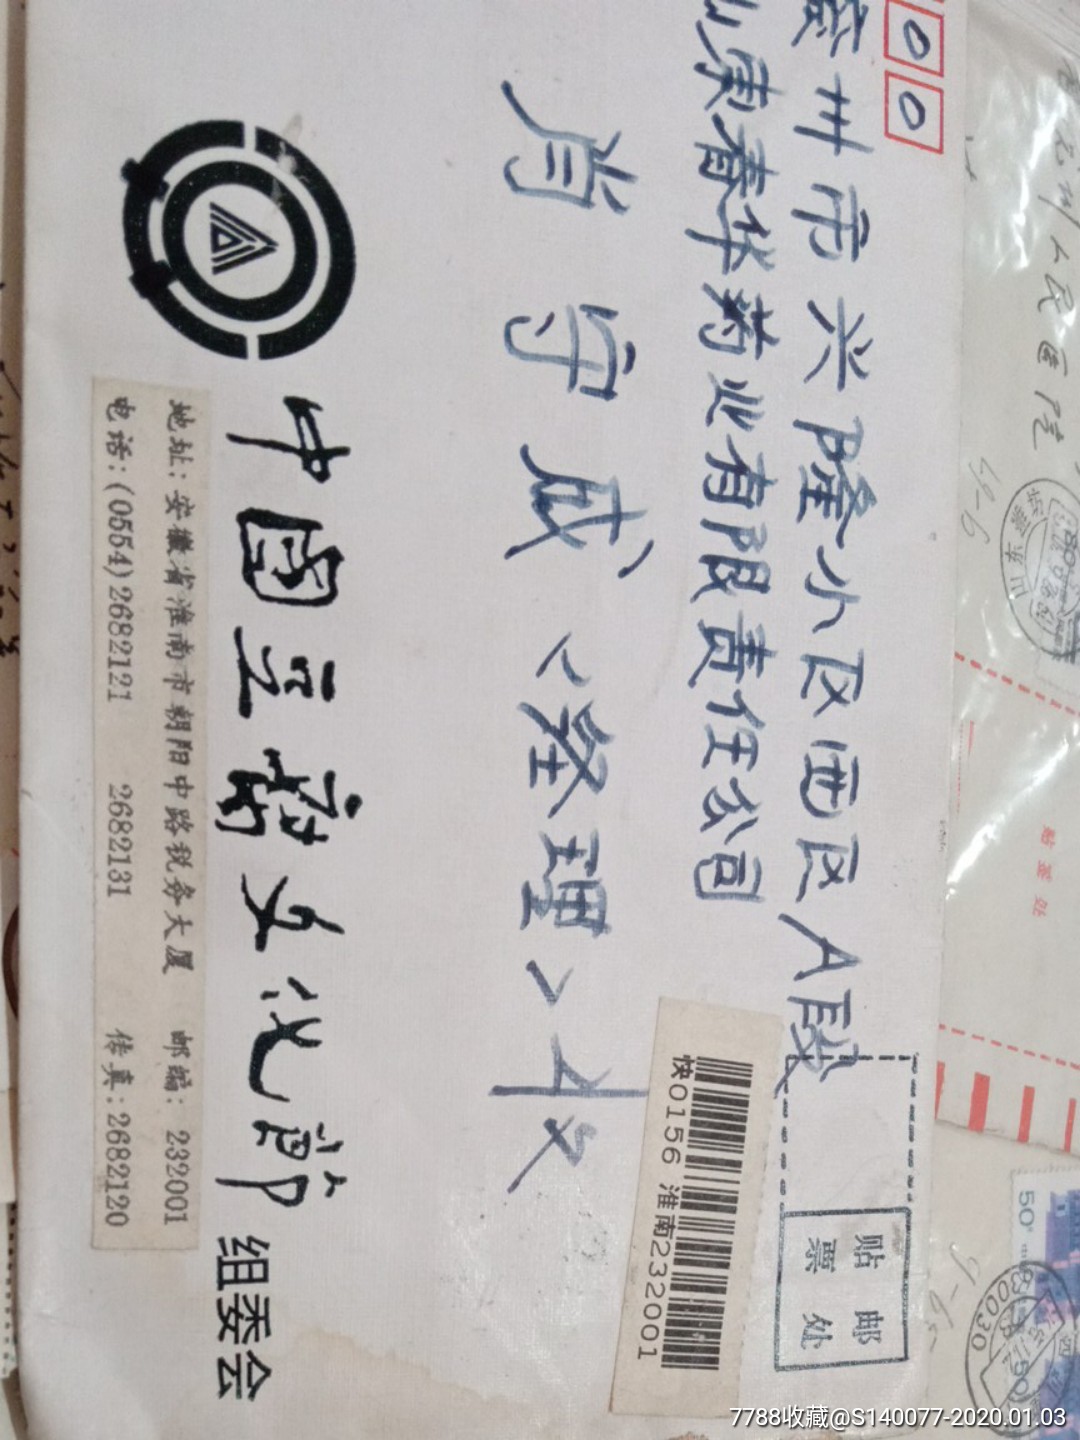 00
州市兴隆小区西区A段
康春华药业有限责任公司
肖守成(经理)收
贴邮
票处
快0156 淮南232001
中国豆腐文化节组委会
地址:安徽省淮南市朝阳中路税务大厦 邮编:232001
电话:(0554)2682121 2682131 传真:2682120
人民医院
贴签处
山东
50
7788收藏@S140077-2020.01.03